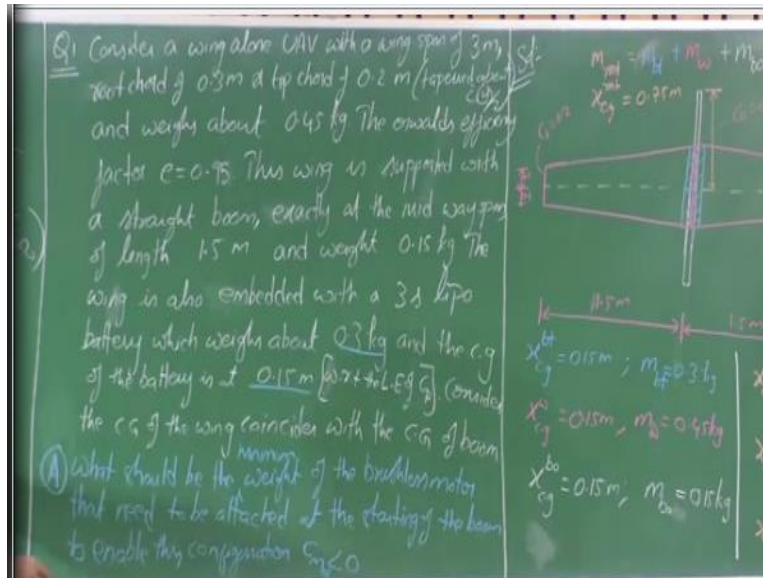 Q1 Consider a wing alone UAV with a wing span of 3m,
root chord of 0.3m & tip chord of 0.2 m (tapered about C(y)/2)
and weighs about 0.45 kg The oswalds efficiency
factor e=0.95 This wing is supported with
a straight boom, exactly at the mid way span
of length 1.5 m and weight 0.15 kg The
wing is also embedded with a 3s lipo
battery which weighs about 0.3 kg and the c.g
of the battery is at 0.15 m [w.r.t the L.E of Cr]. Consider
the C.G of the wing coincides with the C.G of boom
A What should be the minimum weight of the brushless motor
that need to be attached at the starting of the boom
to enable this configuration Cm<0
Sol:
= mbt + mw + mbo
= 0.75m
1.5m
1.5m
Xcg^bt = 0.15m ; mbt = 0.3kg
Xcg^w = 0.15m, mw = 0.45kg
Xcg^bo = 0.15m; mbo = 0.15kg